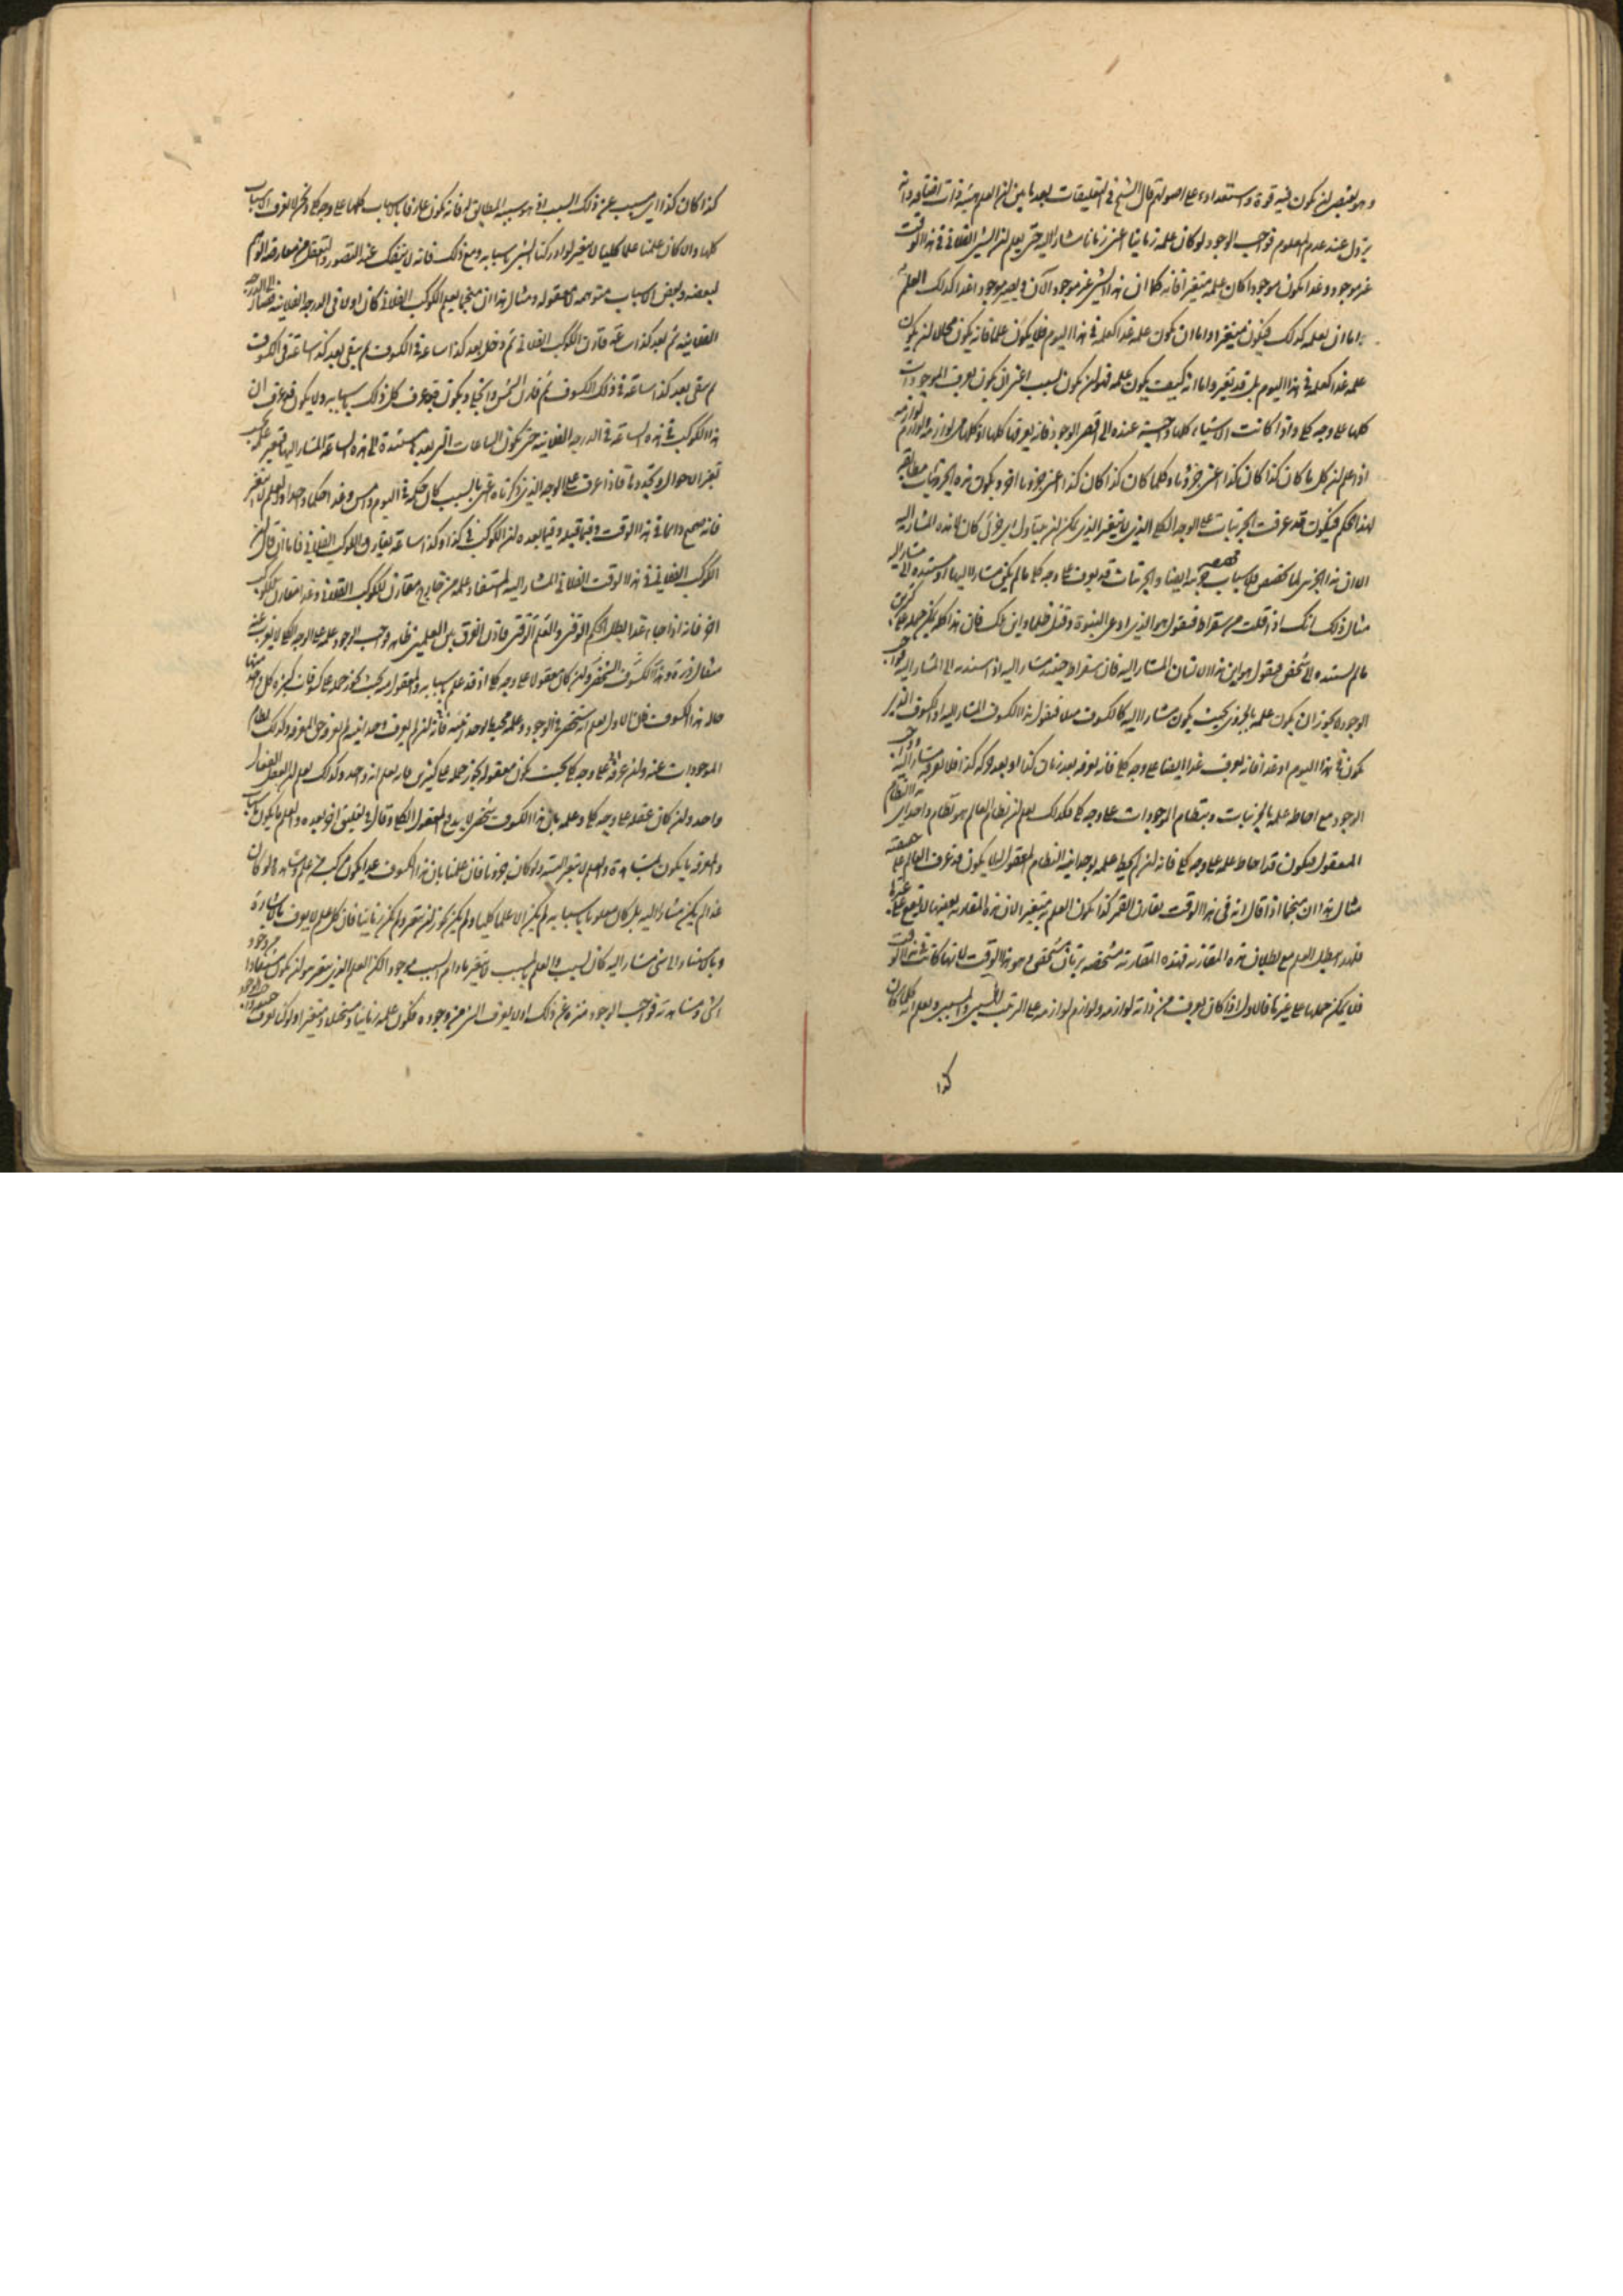 وهو يقتضي ان يكون فيه قوة واستعداد على اصولهم قال الشيخ في التعليقات بعد ما بين ان العلم هيئة ذات اضافة وانه
يزول عند عدم المعلوم فواجب الوجود لو كان علمه زمانيا اعني زمانا مشارا اليه حتى يعلم ان الشيء الفلاني في هذا الوقت
غير موجود وغدا يكون موجودا كان علمه متغيرا فانه كما ان هذا الشيء غير موجود الآن ويصير موجودا غدا كذلك العلم به
اما ان يعلمه كذلك فيكون متغيرا واما ان يكون علمه غدا كعلمه في هذا اليوم فلا يكون علما فانه يكون محالا ان يكون
علمه غدا كعلمه في هذا اليوم بل قد يتغير واما انه كيف يكون علمه فهو ان يكون بسبب اعني ان يكون يعرف الموجودات
كلها على وجه كلي واذا كانت الاشياء كلها واجبة عنده الى اقصى الوجود فانه يعرفها كلها اذ كلها من لوازمه ولوازم لوازمه
اذ اعلم ان كل ما كان كذا كان كذا اعني جزويا وكلما كان كذا كان كذا اعني جزويا اخر ويكون هذه الجزئيات مطابقة
لهذا الحكم فيكون قد عرفت الجزئيات على الوجه الكلي الذي لا يتغير الذي يمكن ان يتناول اي جزئي كان لا هذه المشار اليه
الا ان هذا الجزئي لما تخصص فلاسباب مخصصة جزئية ايضا والجزئيات قد يعرف على وجه كلي ما لم يكن مشارا اليها او مستندة الى مشار اليه
مثال ذلك انك اذا قلت من سقراط فيقول هو الذي ادعى النبوة وقتل ظلما وابن ملك فان هذا كله يمكن حمله على كثيرين
ما لم تسنده الى شخص فيقول هو ابن هذا الانسان المشار اليه فان سقراط حينئذ مشار اليه اذ اسند الى المشار اليه فواجب
الوجود لا يجوز ان يكون علمه بالجزئي بحيث يكون مشارا اليه كالكسوف مثلا فيقول هذا الكسوف المشار اليه او الكسوف الذي
يكون في هذا اليوم او غدا فانه يعرف غدا ايضا على وجه كلي فانه يعرفه بعد زمان كذا او بعد حركة كذا فلا يعرفه مشارا اليه
الوجود مع احاطة علمه بالجزئيات وبنظام الموجودات على وجه كلي فكذلك يعلم ان نظام العالم هو نظام واحد
المعقول فيكون قد احاط علمه على وجه كلي فانه لم يحط علمه بوحدانية النظام المعقول لا يكون قد عرف العالم على حقيقته
مثال هذا ان منجما اذا قال انه في هذا الوقت يقارن القمر كذا يكون العلم به متغيرا لان هذه المقارنة بعينها لا تقع على غيرها
فلهذا يبطل العلم مع بطلان هذه المقارنة فهذه المقارنة متشخصة بزمان متشخص وهو هذا الوقت لانها كانت في هذا الوقت
فلا يمكن حملها على غيرها فالاول اذا كان يعرف من ذاته لوازمه ولوازم لوازمه على الترتيب السببي والمسببي ويعلم انه كلما كان
كذا
كذا كان كذا اي مسبب عن ذلك السبب اذ هو سببه المطابق له فانه يكون عارفا بالاسباب كلها على وجه كلي ونحن لا نعرف الاسباب
كلها والا كان علمنا علما كليا لا يتغير لو ادركنا الشيء باسبابه ومع ذلك فانه لا ينفك عند التصور والتعقل من معارضة الوهم
لبعضه وبعض الاسباب متوهمة لا معقولة ومثال هذا ان منجما يعلم الكوكب الفلاني كان اولا في الدرجة الفلانية فصار الى الدرجة
الفلانية ثم بعد كذا ساعة قارن الكوكب الفلاني ثم دخل بعد كذا ساعة في الكسوف ثم بقي بعد كذا ساعة في الكسوف
ثم بقي بعد كذا ساعة في ذلك الكسوف ثم فارق الشمس وانجلا ويكون قد عرف كل ذلك باسبابه ولا يكون قد عرف ان
هذا الكوكب في هذه الساعة في الدرجة الفلانية حتى تكون الساعات التي بعدها مستندة الى هذه الساعة المشار اليها فيتغير علمه بحسب
تغير الاحوال وتجددها فاذا عرفت على الوجه الذي ذكرناه اعني بالسبب كان حكمه في اليوم وامس وغدا حكما واحدا والعلم لا يتغير
فانه صحيح دائما في هذا الوقت وفيما قبله وفيما بعده ان الكوكب في كذا وكذا ساعة يقارن الكوكب الفلاني فاما ان قال ان
الكوكب الفلاني في هذا الوقت الفلاني المشار اليه المستفاد علمه من خارج مقارن للكوكب الفلاني وغدا مقارن لكوكب
اخر فانه اذا جاء غدا بطل الحكم الوقتي والعلم الوقتي فاذن الفرق بين العلمين ظاهر وواجب الوجود علمه على الوجه الكلي لا يعزب عنه
مثقال ذرة وهذا الكسوف الشخصي وان كان معقولا على وجه كلي اذ قد علم باسبابه والمعقول منه بحيث يجوز حمله على كسوفات كثيرة كل واحد منها
حاله هذا الكسوف فان الاول يعلم انه شخصي في الوجود وعلمه محيط بوحدانيته فانه ان لم يعرف وحدانيته لم يعرفه حق المعرفة وكذلك نظام
الموجودات عنه وان عرفه على وجه كلي بحيث يكون معقوله يجوز حمله على كثيرين فانه يعلم انه واحد وكذلك يعلم ان العقل الفعال
واحد وان كان عقله على وجه كلي وعلمه بان هذا الكسوف شخصي لا يدفع المعقول الكلي وقال في تعليق اخر بعيده والعلم ما يكون باسباب
والمعرفة ما يكون بمشاهدة والعلم لا يتغير البتة ولو كان جزئيا فان علمنا بان هذا الكسوف غدا يكون مركب من علم ومشاهدة ولو كان
غدا لم يكن مشارا اليه بل كان معلوما باسبابه لم يكن الا علما كليا ولم يكن يجوز ان يتغير ولم يكن زمانيا فان كل علم لا يعرف بالاشارة
وباستناد الى شيء مشار اليه كان بسبب والعلم بالسبب لا يتغير ما دام السبب موجودا لكن العلم الذي يتغير هو ان يكون مستفادا من وجود
الشيء ومشاهدته فواجب الوجود منزه عن ذلك اذ لا يعرف الشيء من وجوده فيكون علمه زمانيا ومستحيلا ومتغيرا ولو كنا نعرف